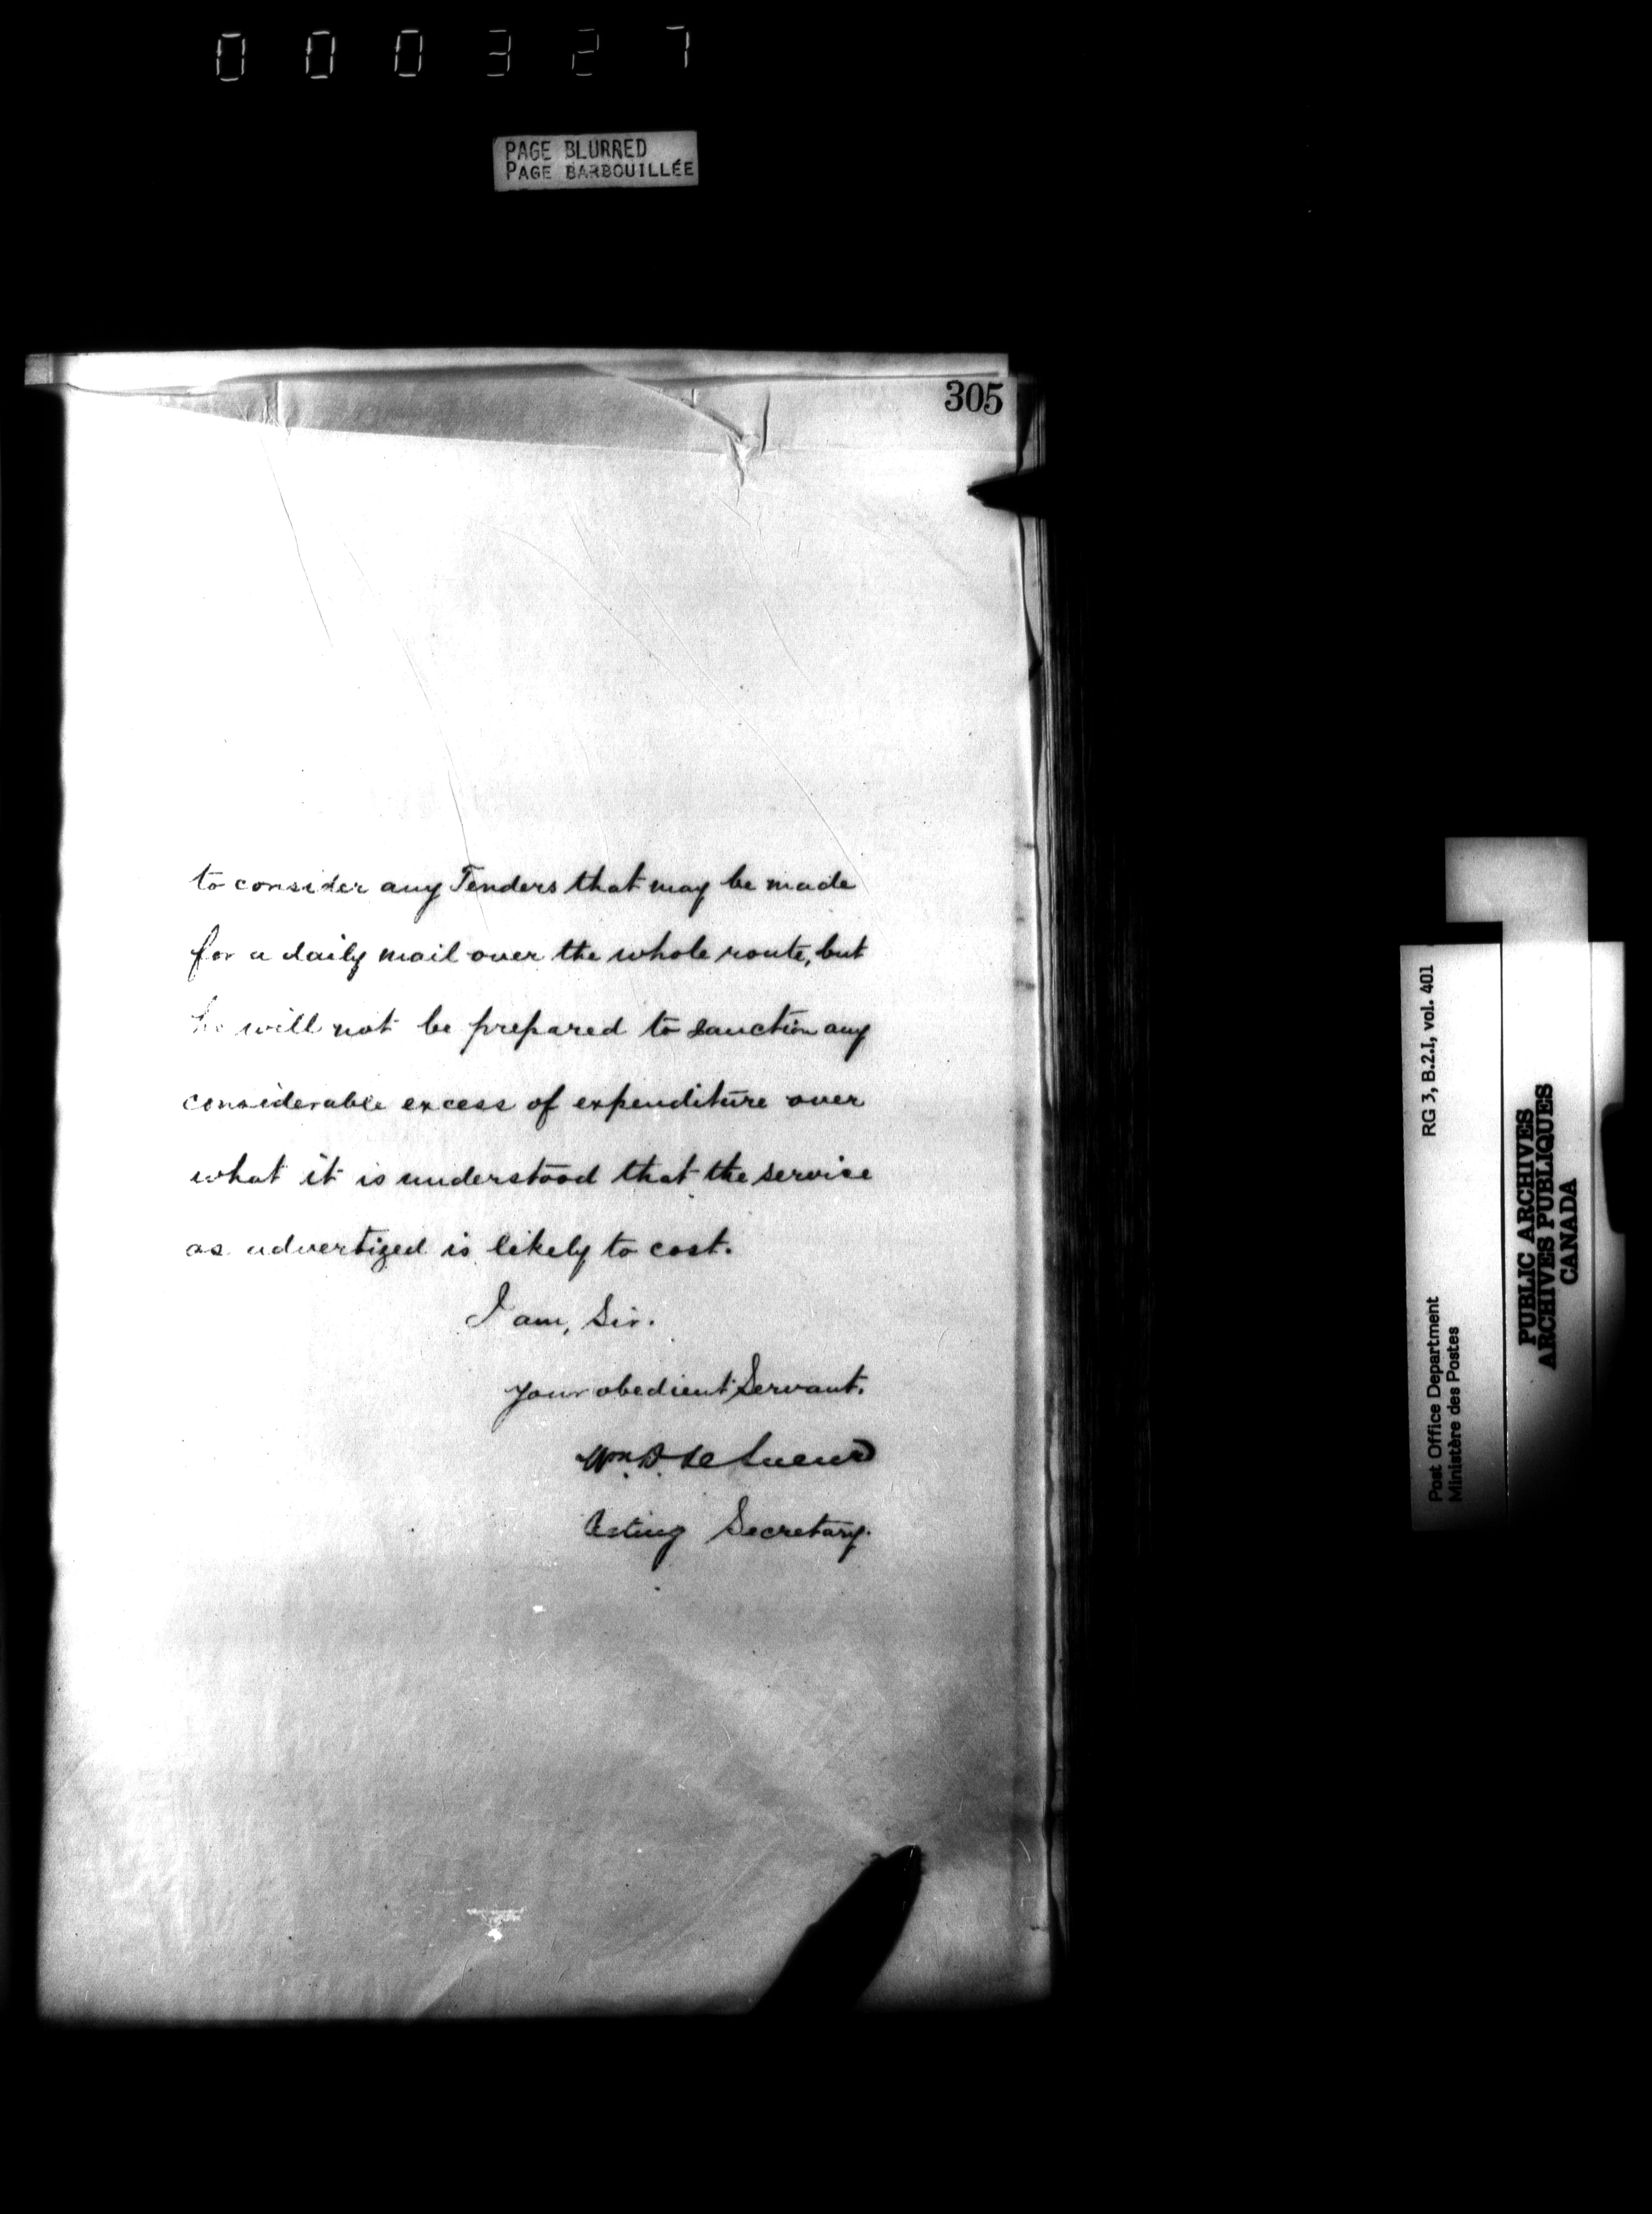 000327
PAGE BLURRED
PAGE BARBOUILLÉE
305
to consider any Tenders that may be made
for a daily mail over the whole route, but
he will not be prepared to sanction any
considerable excess of expenditure over
what it is understood that the service
as advertized is likely to cost.
I am, Sir.
your obedient Servant.
Wm. D. Le Sueur
Acting Secretary.
RG 3, B.2.I, vol. 401
Post Office Department
Ministère des Postes
PUBLIC ARCHIVES
ARCHIVES PUBLIQUES
CANADA